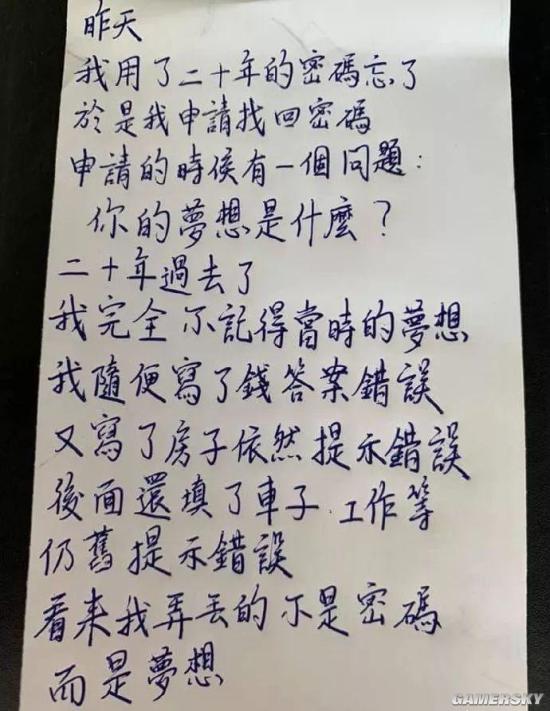 昨天
我用了二十年的密碼忘了
於是我申請找回密碼
申請的時候有一個問題：
你的夢想是什麼？
二十年過去了
我完全不記得當時的夢想
我隨便寫了錢答案錯誤
又寫了房子依然提示錯誤
後面還填了車子.工作等
仍舊提示錯誤
看来我弄丟的不是密碼
而是夢想
GAMERSKY